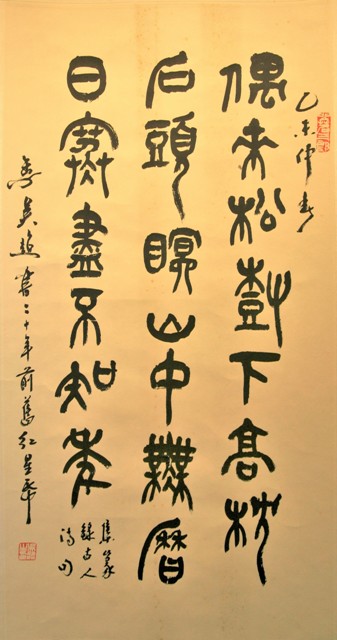 仲春
偶来松樹下高枕
石頭眠山中無曆
日寒盡不知年
集篆
錄古人
詩句
書二十年前舊紅星